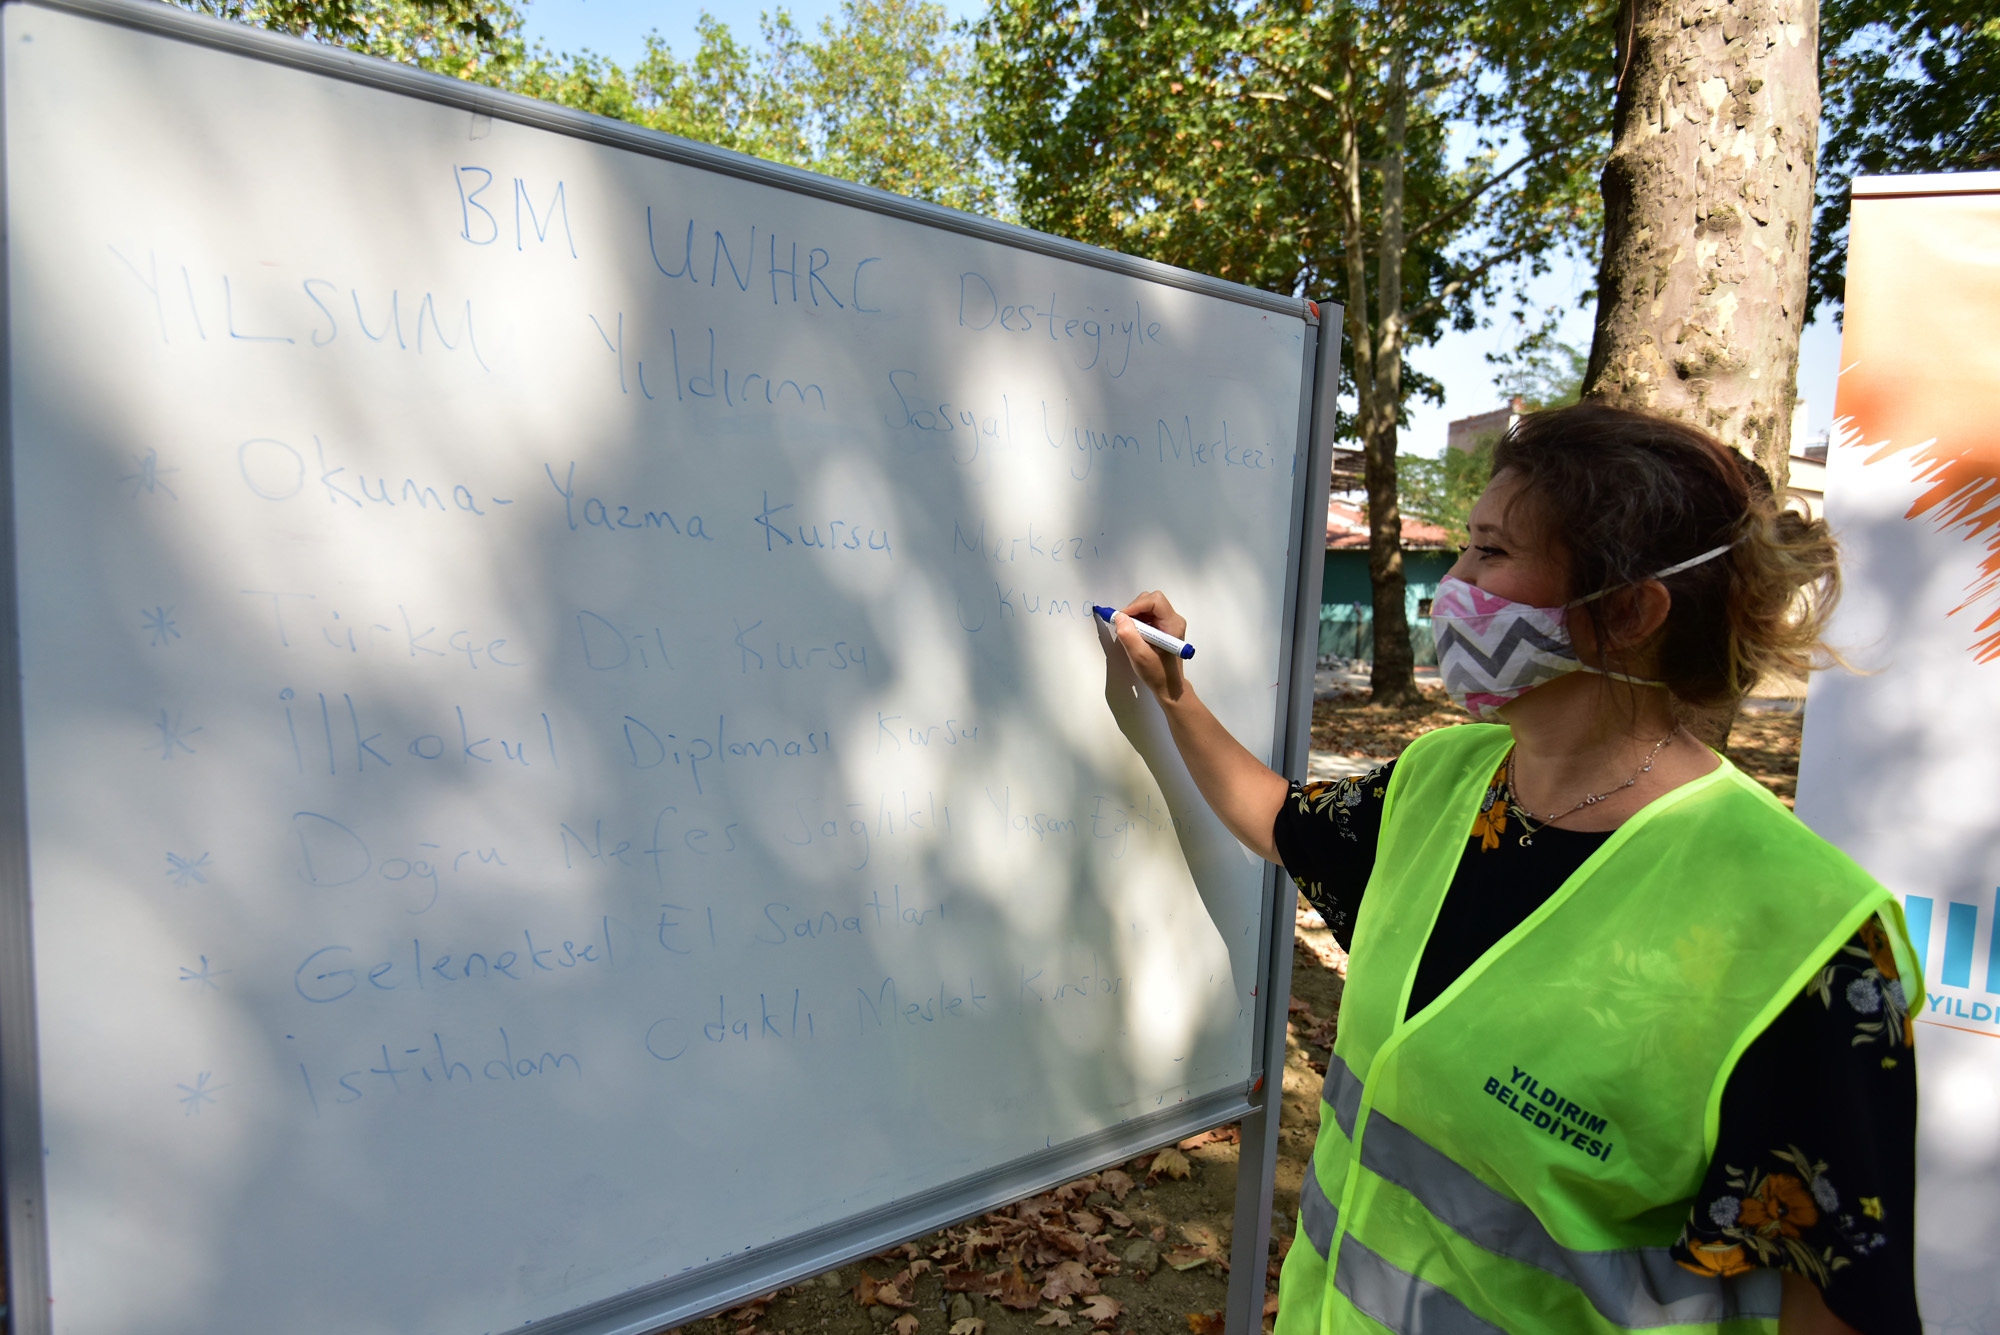 BM UNHRC Desteğiyle
YILSUM Yıldırım Sosyal Uyum Merkezi
* Okuma-Yazma Kursu Merkezi
Okuma
* Türkçe Dil Kursu
* İlkokul Diploması Kursu
* Doğru Nefes Sağlıklı Yaşam Eğitimi
* Geleneksel El Sanatları
* İstihdam Odaklı Meslek Kursları
YILDIRIM
BELEDİYESİ
YILDI